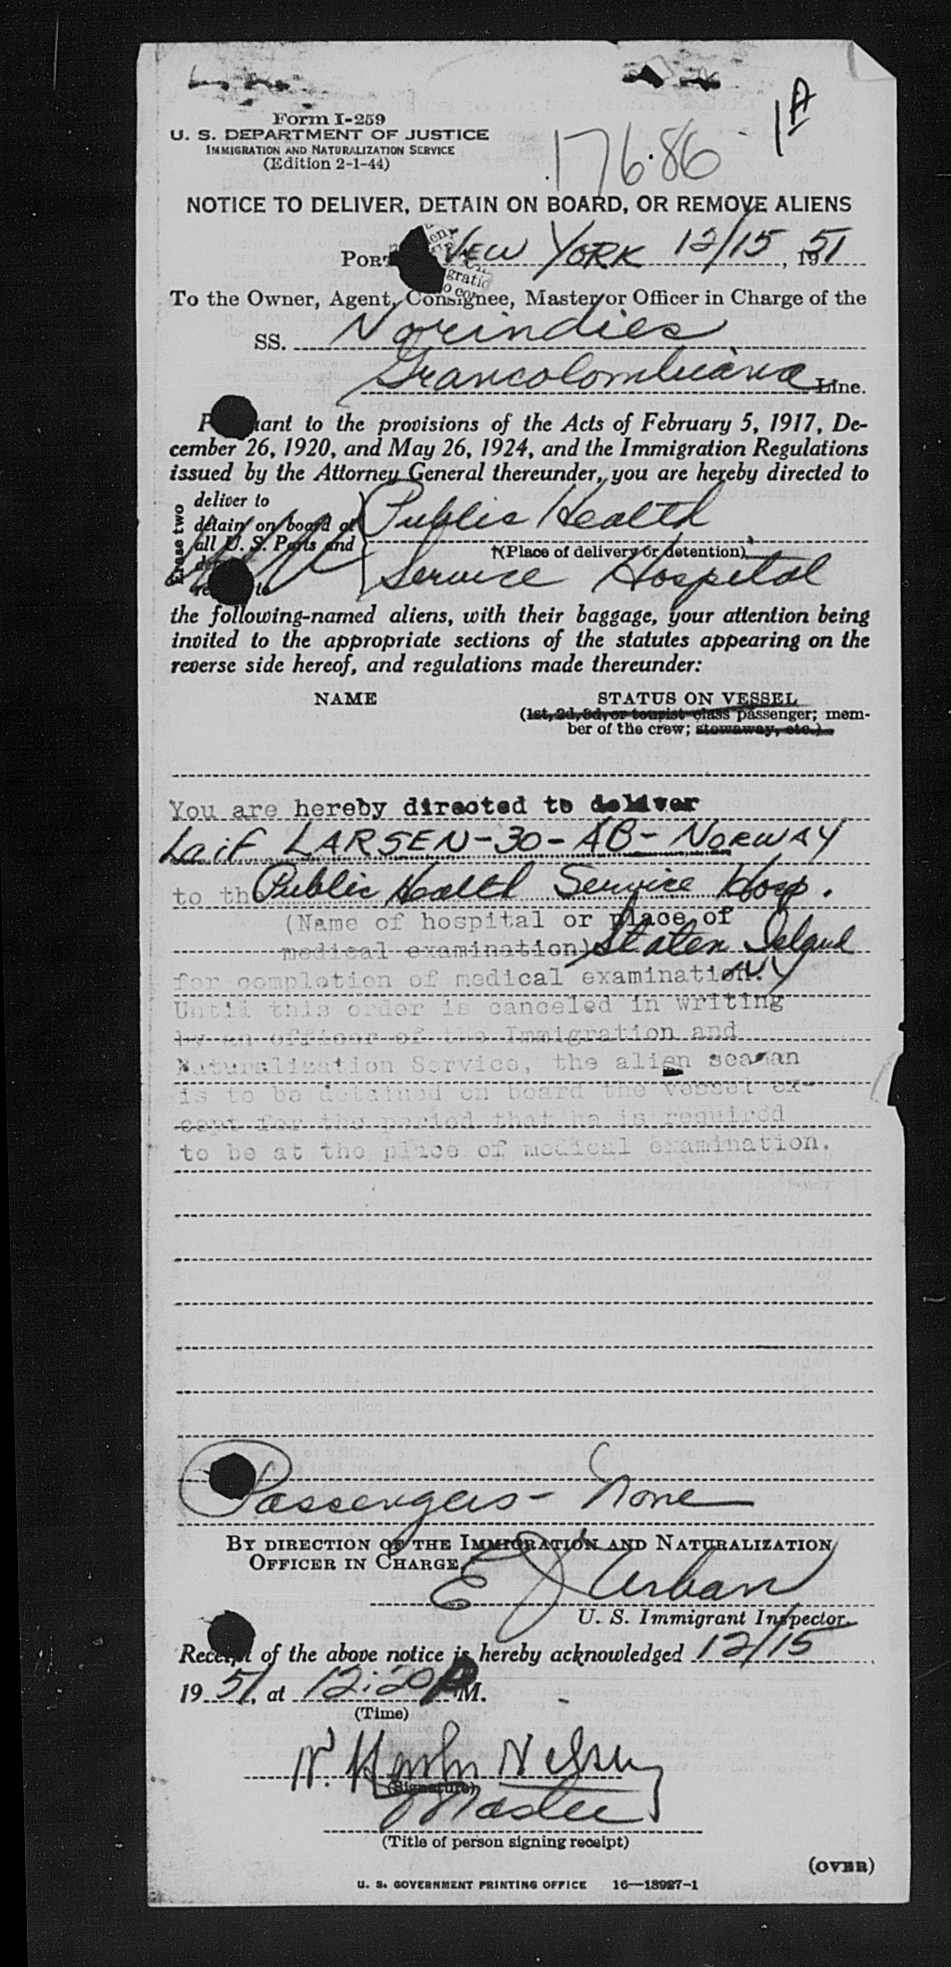 Form I-259
U. S. DEPARTMENT OF JUSTICE
IMMIGRATION AND NATURALIZATION SERVICE
(Edition 2-1-44)
1A
17686
NOTICE TO DELIVER, DETAIN ON BOARD, OR REMOVE ALIENS
PORT NEW YORK 12/15, 1951
To the Owner, Agent, Consignee, Master or Officer in Charge of the
SS. Norindies
Grancolombiana Line.
P ant to the provisions of the Acts of February 5, 1917, De-
cember 26, 1920, and May 26, 1924, and the Immigration Regulations
issued by the Attorney General thereunder, you are hereby directed to
Erase two
deliver to
detain on board at
all U. S. Ports and
Public Health
(Place of delivery or detention)
Service Hospital
the following-named aliens, with their baggage, your attention being
invited to the appropriate sections of the statutes appearing on the
reverse side hereof, and regulations made thereunder:
NAME STATUS ON VESSEL
(1st, 2d, 3d, or tourist class passenger; mem-
ber of the crew; stowaway, etc.)
You are hereby directed to deliver
Laif LARSEN-30-AB-NORWAY
to th Public Health Service Hosp.
(Name of hospital or place of
medical examination) Staten Island
for completion of medical examination. NY
Until this order is canceled in writing
by an officer of the Immigration and
Naturalization Service, the alien seaman
is to be detained on board the vessel ex-
cept for the period that he is required
to be at the place of medical examination.
Passengers - None
BY DIRECTION OF THE IMMIGRATION AND NATURALIZATION
OFFICER IN CHARGE
E J Urban
U. S. Immigrant Inspector.
Receipt of the above notice is hereby acknowledged 12/15
1951, at 12:20 P M.
(Time)
N. Nilsen
(Signature)
Master
(Title of person signing receipt)
(OVER)
U. S. GOVERNMENT PRINTING OFFICE 16—18927-1